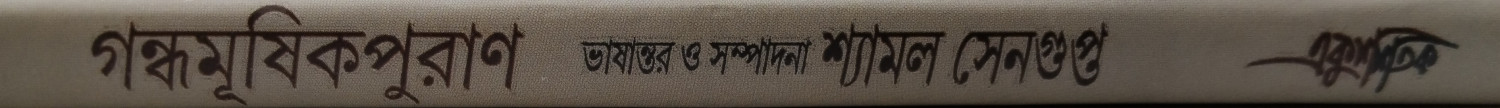 গন্ধমূষিকপুরাণ ভাষান্তর ও সম্পাদনা শ্যামল সেনগুপ্ত একুশ শতক